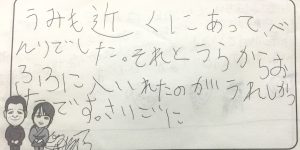 うみも近くにあって、べ
んりでした。それとうらからお
ふろに入いれたのがうれしかっ
たです。さいごに